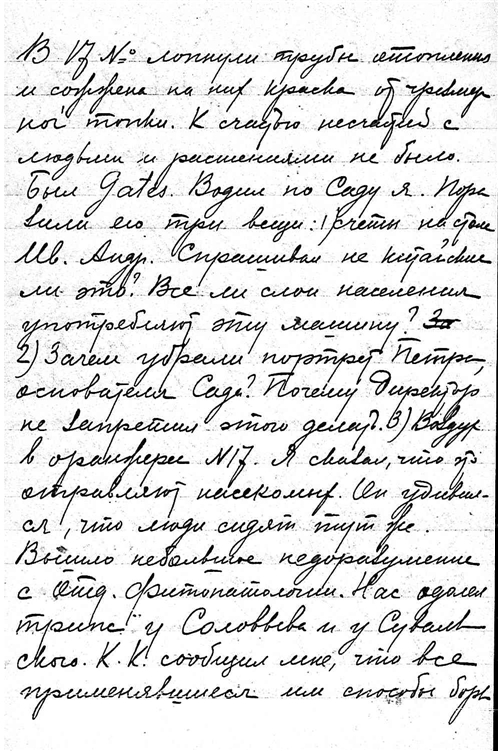 В 17 № лопнули трубы отопления
и сожжена на них краска от чрезмер
ной топки. К счастью несчастий с
людьми и растениями не было.
Был Gates. Водил по Саду я. Пора
зили его три вещи: 1) счеты на столе
Ив. Андр. Спрашивал не китайские
ли это? Все ли слои населения
употребляют эту машину? За
2) Зачем убрали портрет Петра,
основателя Сада? Почему Директор
не запретил этого делать. 3) Воздух
в оранжерее N17. Я сказал, что это
отравляют насекомых. Он удивил-
ся, что люди сидят тут же.
Вышло небольшое недоразумение
с Отд. Фитопатологии. Нас одолел
"трипс" у Соловьева и у Суваль
ского. К.К. сообщил мне, что все
применявшиеся им способы борь